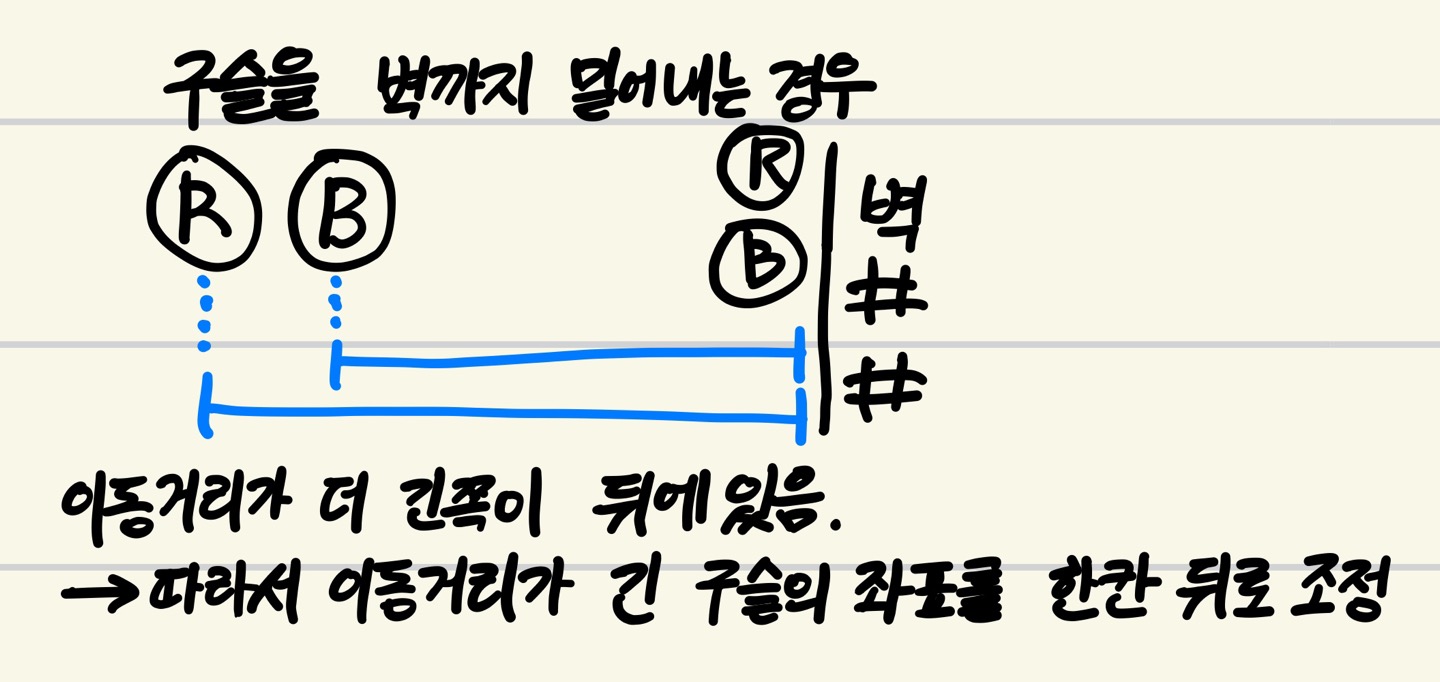 구슬을 벽까지 밀어내는 경우
R B R 벽
B #
#
이동거리가 더 긴쪽이 뒤에 있음.
→ 따라서 이동거리가 긴 구슬의 좌표를 한칸 뒤로 조정